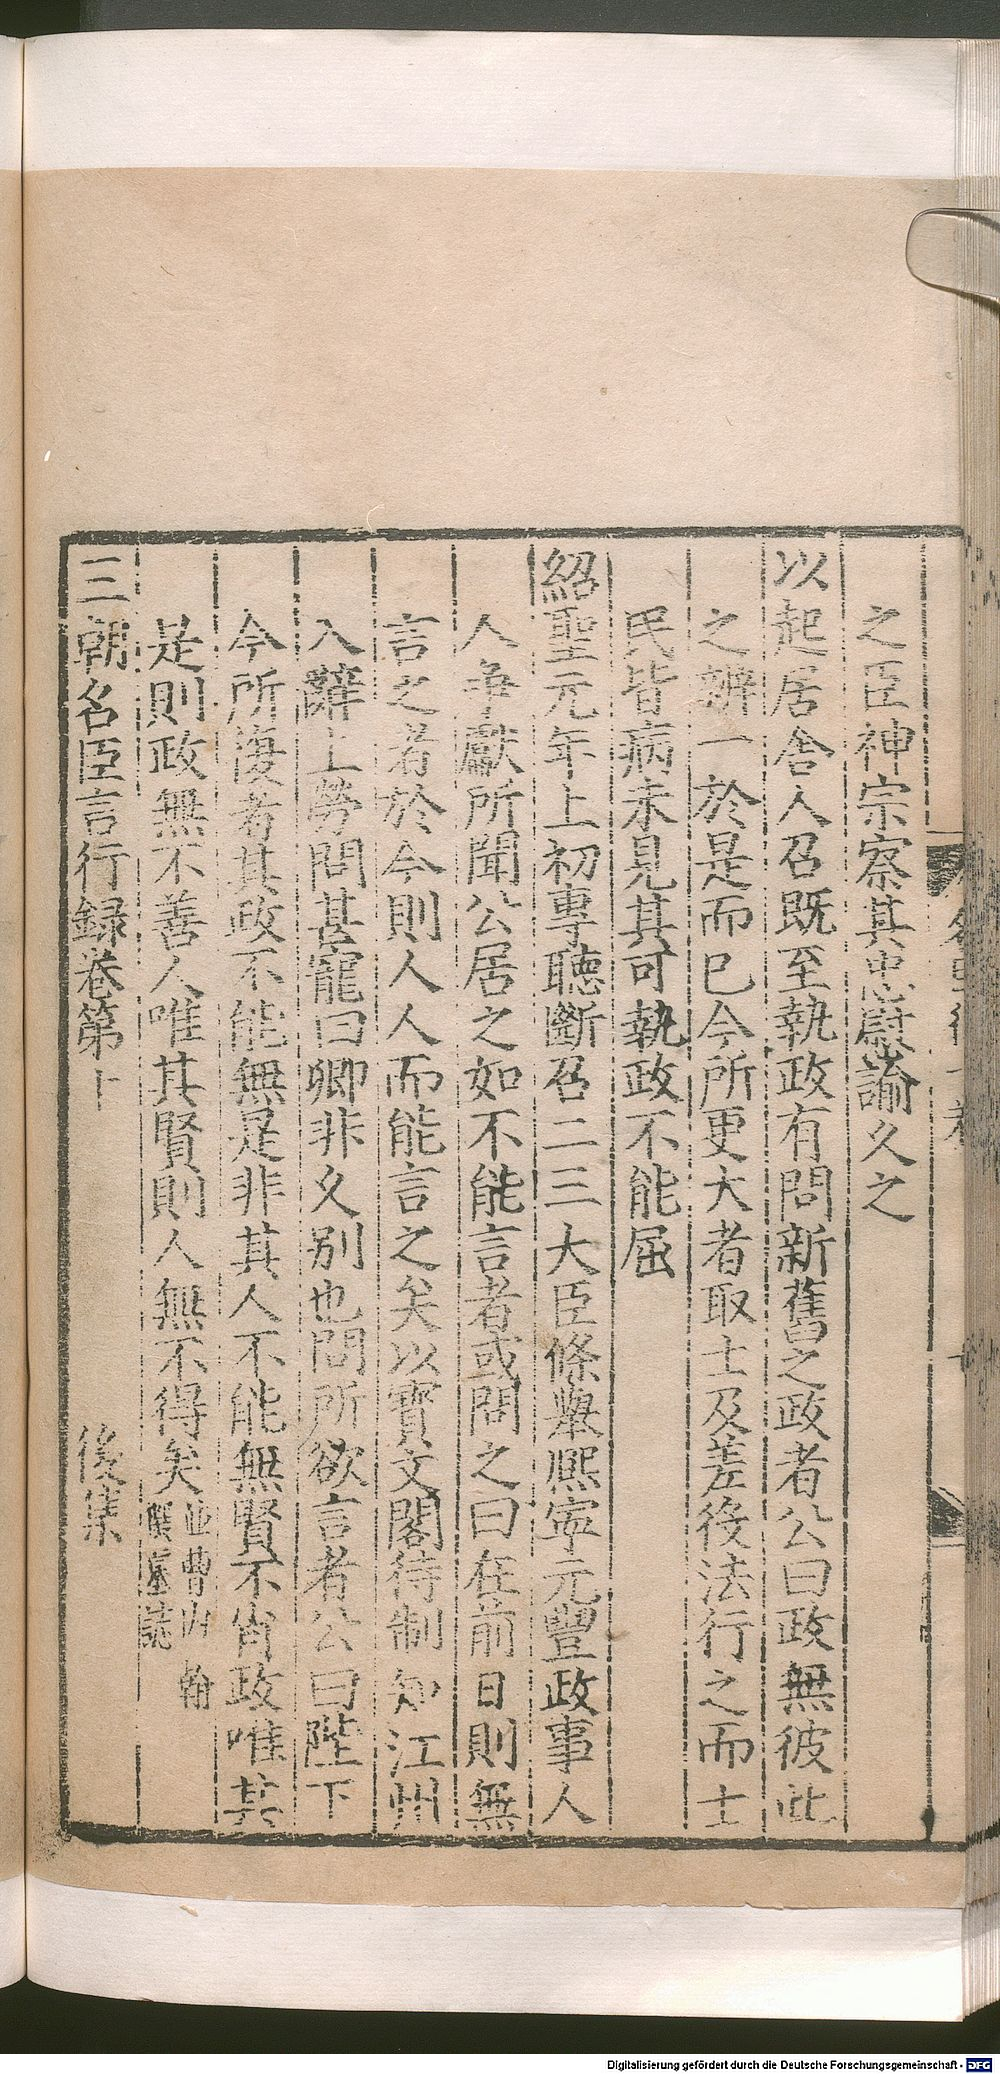 之臣神宗察其忠慰諭久之
以起居舍人召既至執政有問新舊之政者公曰政無彼此
之辨一於是而已今所更大者取士及差役法行之而士
民皆病未見其可執政不能屈
紹聖元年上初專聽斷召二三大臣條舉熈寧元豐政事人
人爭獻所聞公居之如不能言者或問之曰在前日則無
言之者於今則人人而能言之矣以寶文閣待制知江州
入辭上勞問甚寵曰卿非久別也問所欲言者公曰陛下
今所復者其政不能無是非其人不能無賢不肖政唯其
是則政無不善人唯其賢則人無不得矣
並曾内翰
撰墓誌
三朝名臣言行録卷第十 後集
Digitalisierung gefördert durch die Deutsche Forschungsgemeinschaft - DFG